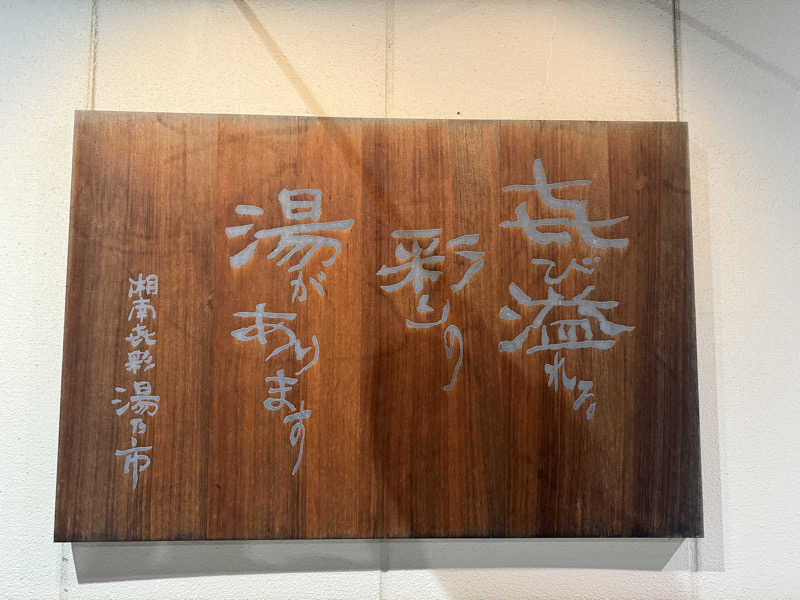 㐂び溢れる
彩り
湯があります
湘南㐂彩 湯乃市